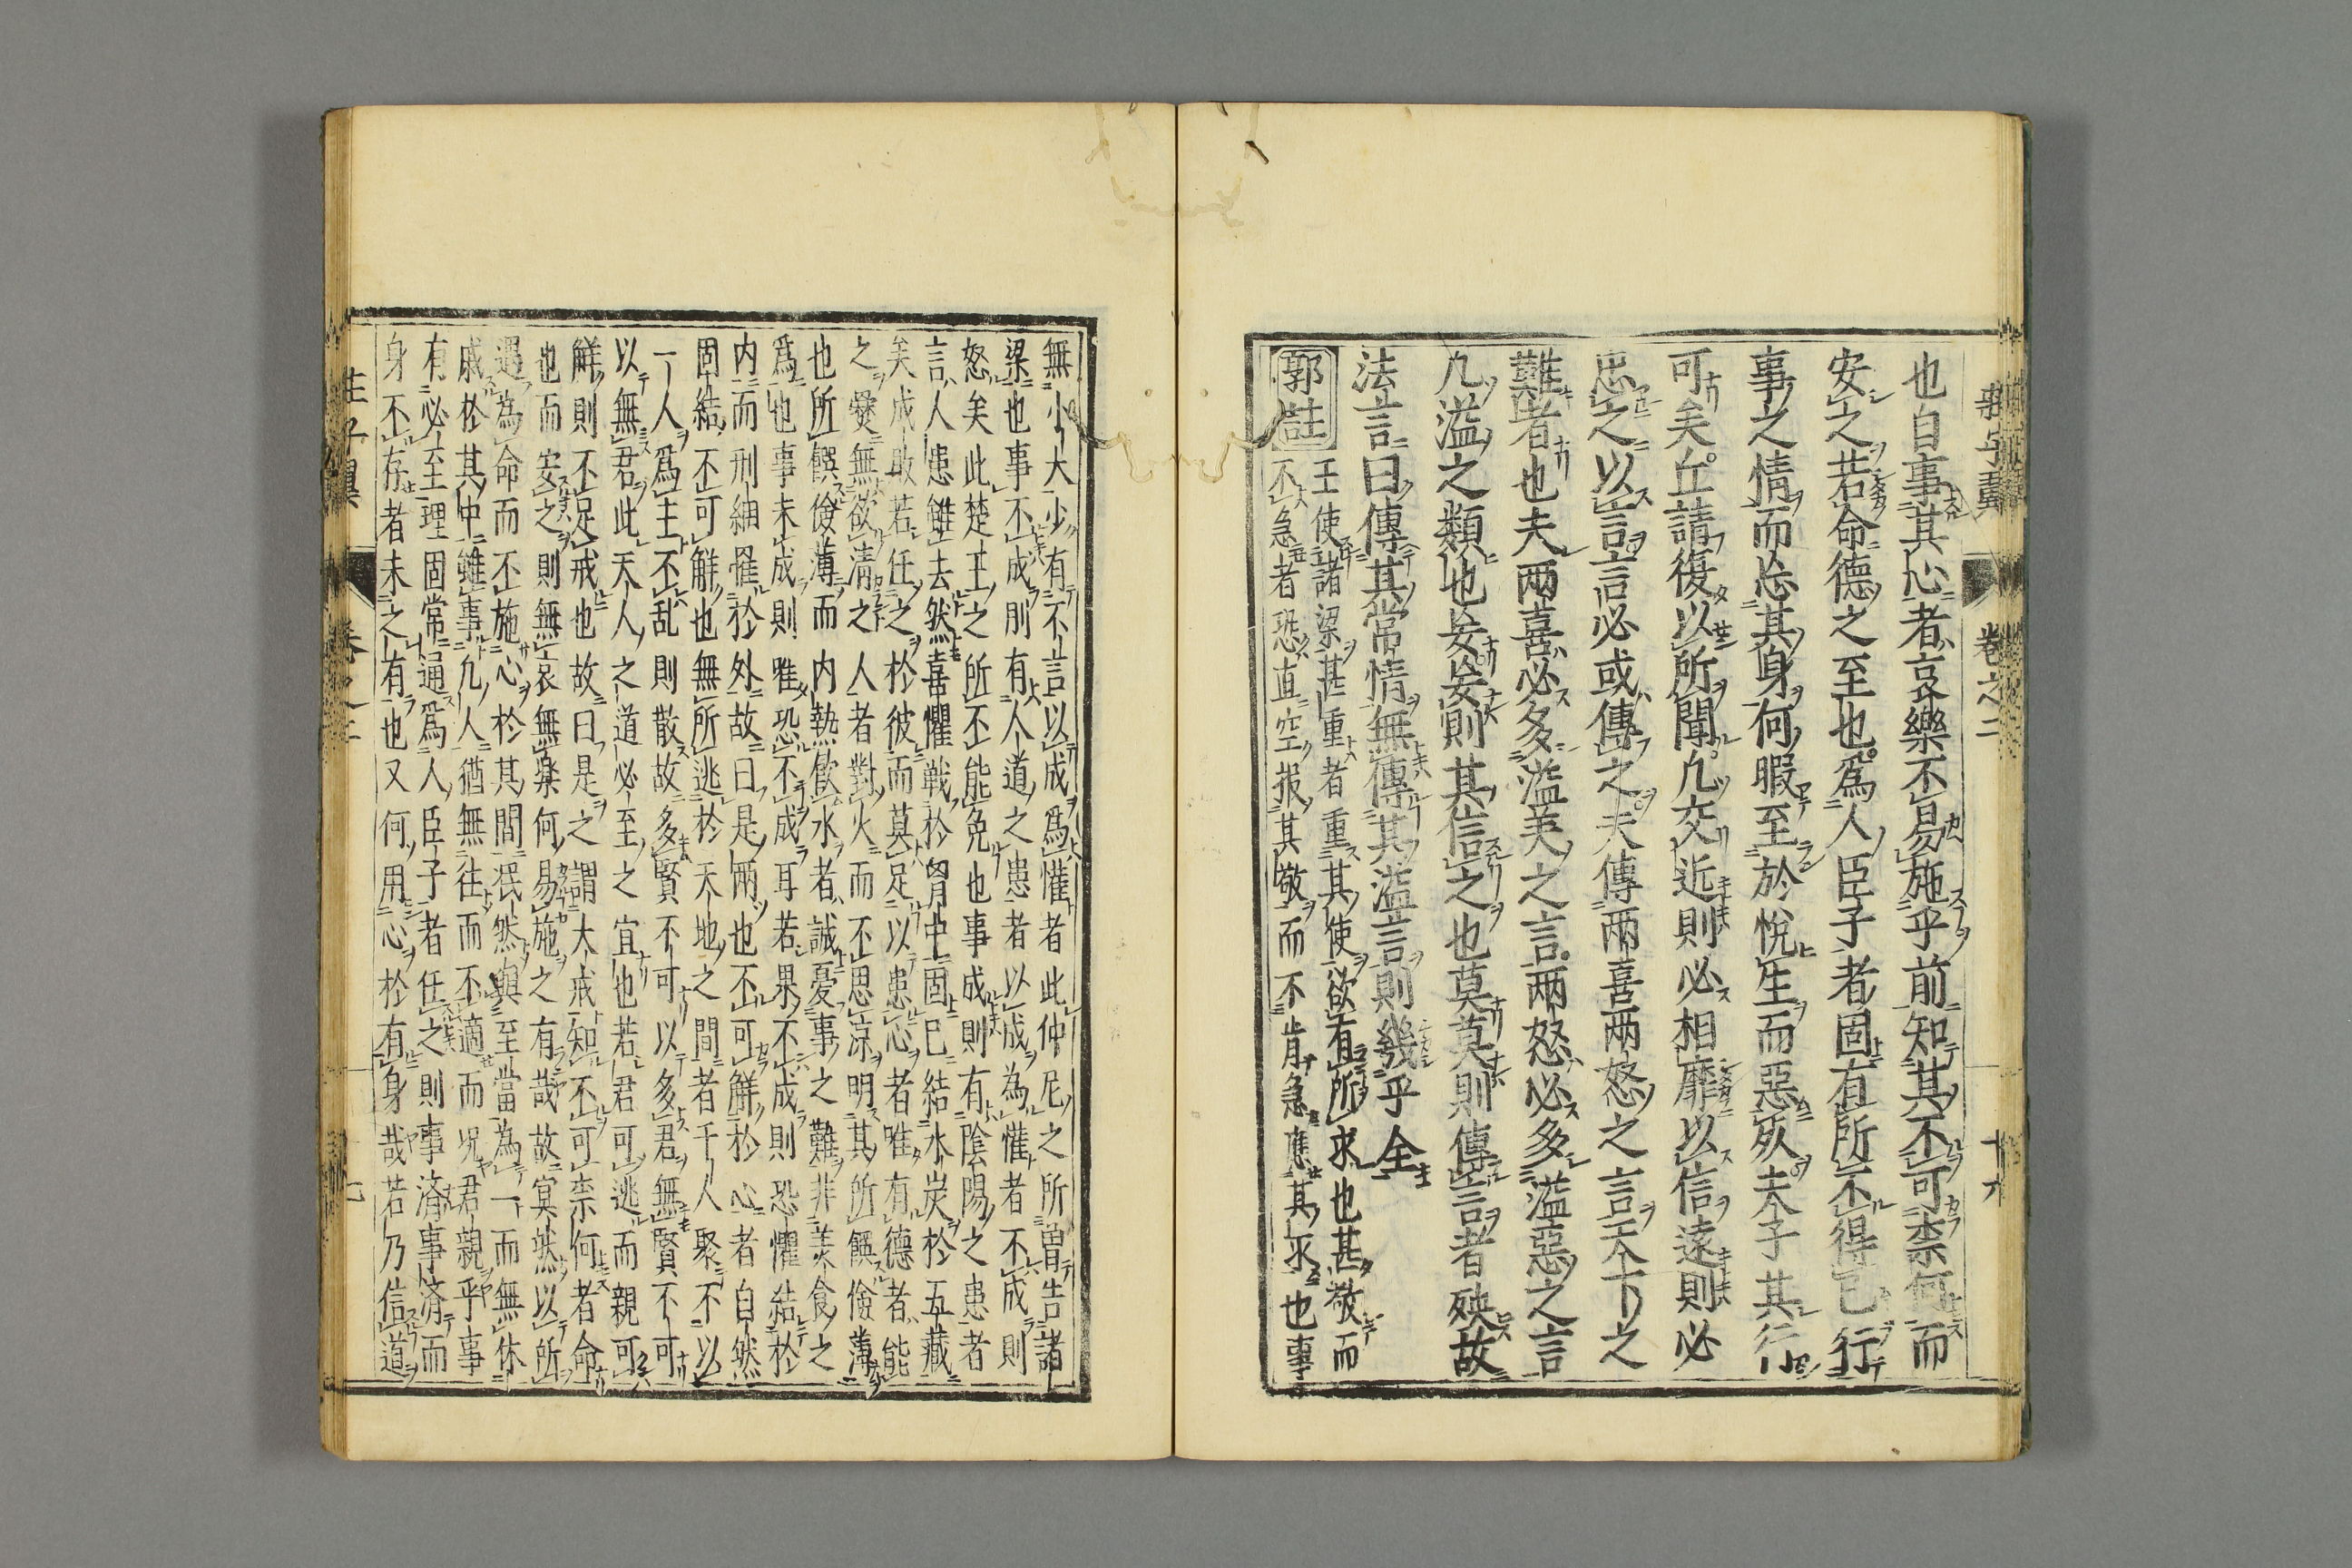 莊子翼 卷之二 十六
也自事其心者哀樂不易施乎前知其不可柰何而
安之若命德之至也爲人臣子者固有所不得已行
事之情而忘其身何暇至於悅生而惡死夫子其行
可矣丘請復以所聞凢交近則必相靡以信遠則必
忠之以言言必或傳之夫傳兩喜兩怒之言天下之
難者也夫兩喜必多溢美之言兩怒必多溢惡之言
凢溢之類也妄妄則其信之也莫莫則傳言者殃故
法言曰傳其常情無傳其溢言則幾乎全
郭註
王使諸梁甚重者重其使欲有所求也甚敬而
不急者恐直空报其敬而不肯急應其求也事
無小大少有不言以成爲懽者此仲尼之所曽告諸
梁也事不成則有人道之患者以成為懽者不成則
怒矣此楚王之所不能免也事成則有陰陽之患者
言人患雖去然喜懼戦於胷中固已結氷炭於五藏
矣成敗若任之於彼而莫足以患心者唯有德者能
之爨無欲清之人者對火而不思凉明其所饌儉薄
也所饌儉薄而内熱飲水者誠憂事之難非美食之
爲也事未成則唯恐不成耳若果不成則恐懼結於
内而刑網罹於外故曰是兩也不可解於心者自然
固結不可解也無所逃於天地之間者千人聚不以
一人爲主不乱則散故多賢不可以多君無賢不可
以無君此天人之道必至之宜也若君可逃而親可
解則不足戒也故曰是之謂大戒知不可柰何者命
也而安之則無哀無樂何易施之有哉故冥然以所
遇為命而不施心於其間泯然與至當為一而無休
戚於其中雖事凢人猶無往而不適而况君親乎事
有必至理固常通爲人臣子者任之則事済事済而
身不存者未之有也又何用心於有身哉若乃信道
莊子翼 卷之二